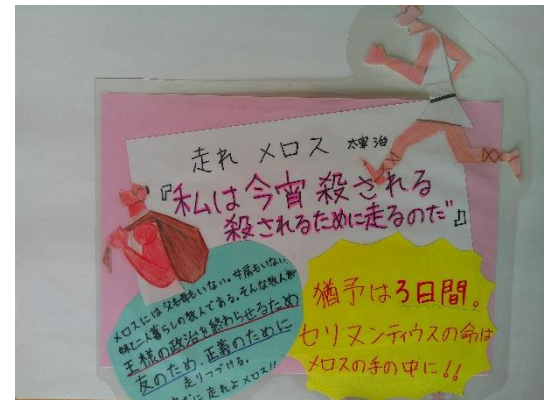 走れ メロス 太宰治
『私は今宵 殺される
殺されるために走るのだ』
メロスには父も母もいない。女房もいない。
妹と二人暮らしの牧人である。そんな牧人が
王様の政治を終わらせるため
友のため 正義のために
走りつづける。
走れよメロス!!
猶予は3日間。
セリヌンティウスの命は
メロスの手の中に!!